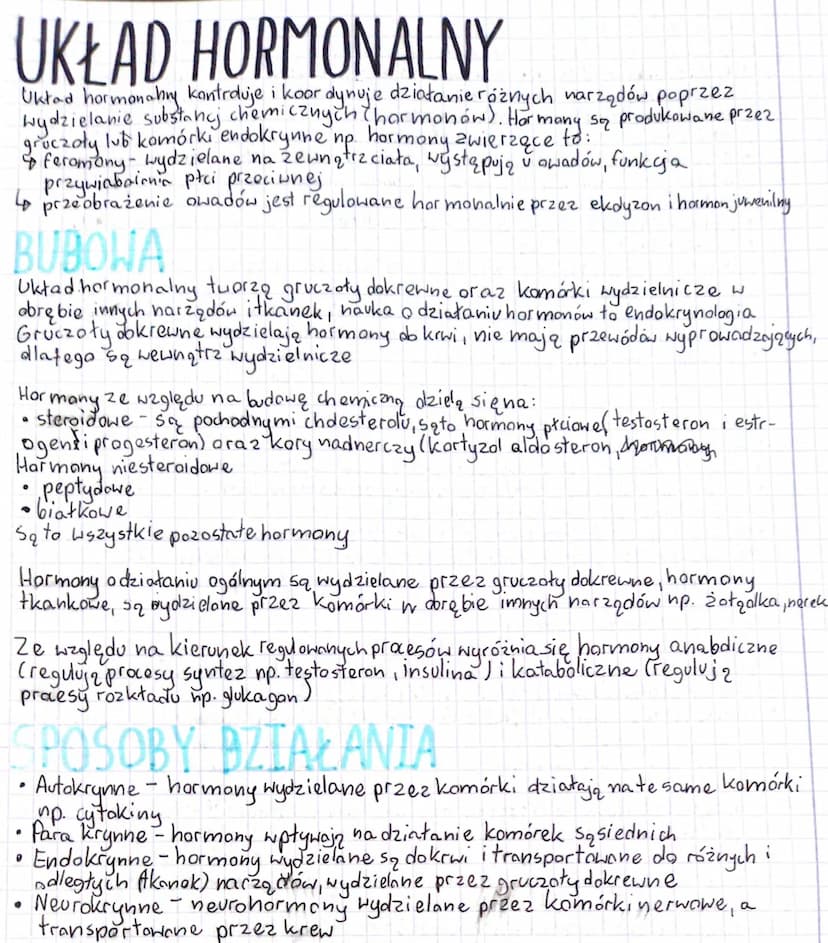 UKŁAD HORMONALNY
Układ hormonalny kontroluje i koordynuje działanie różnych narządów poprzez
wydzielanie substancj chemicznych (hormonów). Hormony są produkowane przez
gruczoły lub komórki endokrynne np. hormony zwierzęce to:
↳ feromony - wydzielane na zewnątrz ciała, występują u owadów, funkcja
przywiabiania płci przeciwnej
↳ przeobrażenie owadów jest regulowane hormonalnie przez ekdyzon i hormon juwenilny
BUDOWA
Układ hormonalny tworzą gruczoły dokrewne oraz komórki wydzielnicze w
obrębie innych narządów i tkanek, nauka o działaniu hormonów to endokrynologia
Gruczoły dokrewne wydzielają hormony do krwi, nie mają przewodów wyprowadzających,
dlatego są wewnątrz wydzielnicze
Hormony ze względu na budowę chemiczną dzielą się na:
• steroidowe - są pochodnymi cholesterolu, są to hormony płciowe (testosteron i estr-
ogeny i progesteron) oraz kory nadnerczy (kortyzol aldosteron,
Hormony niesteroidowe
• peptydowe
• białkowe
Są to wszystkie pozostałe hormony
Hormony o działaniu ogólnym są wydzielane przez gruczoły dokrewne, hormony
tkankowe, są wydzielane przez komórki w obrębie innych narządów np. żołądka, nerek
Ze względu na kierunek regulowanych procesów wyróżnia się hormony anaboliczne
(regulują procesy syntez np. testosteron, insulina) i kataboliczne (regulują
procesy rozkładu np. glukagon)
SPOSOBY DZIAŁANIA
• Autokrynne - hormony wydzielane przez komórki działają na te same komórki
np. cytokiny
• Para krynne - hormony wpływają na działanie komórek sąsiednich
• Endokrynne - hormony wydzielane są do krwi i transportowane do różnych i
odległych (tkanek) narządów, wydzielane przez gruczoły dokrewne
• Neurokrynne - neurohormony wydzielane przez komórki nerwowe, a
transportowane przez krew